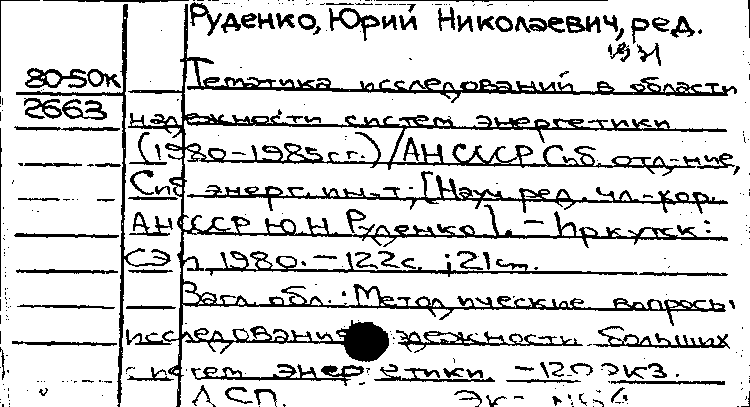 Руденко, Юрий Николаевич, ред.
1931
80-50к Тематика исследований в области
2663 надежности систем энергетики
(1980-1985гг.) / АН СССР Сиб. отд-ние,
Сиб. энерг. ин-т; [Науч. ред. чл.-кор.
АН СССР Ю.Н. Руденко]. - Иркутск:
СЭИ, 1980. - 122с. ; 21см.
Загл. обл.: Методические вопросы
исследования надежности больших
систем энергетики. - 120экз.
ДСП.